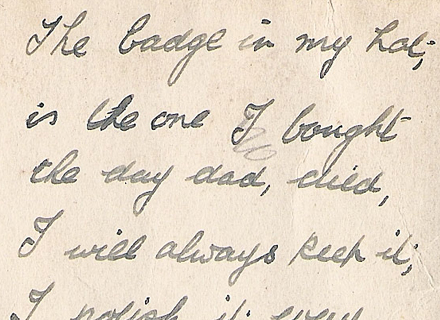 The badge in my hat;
is the one I bought
the day dad, died,
I will always keep it;
I polish it every